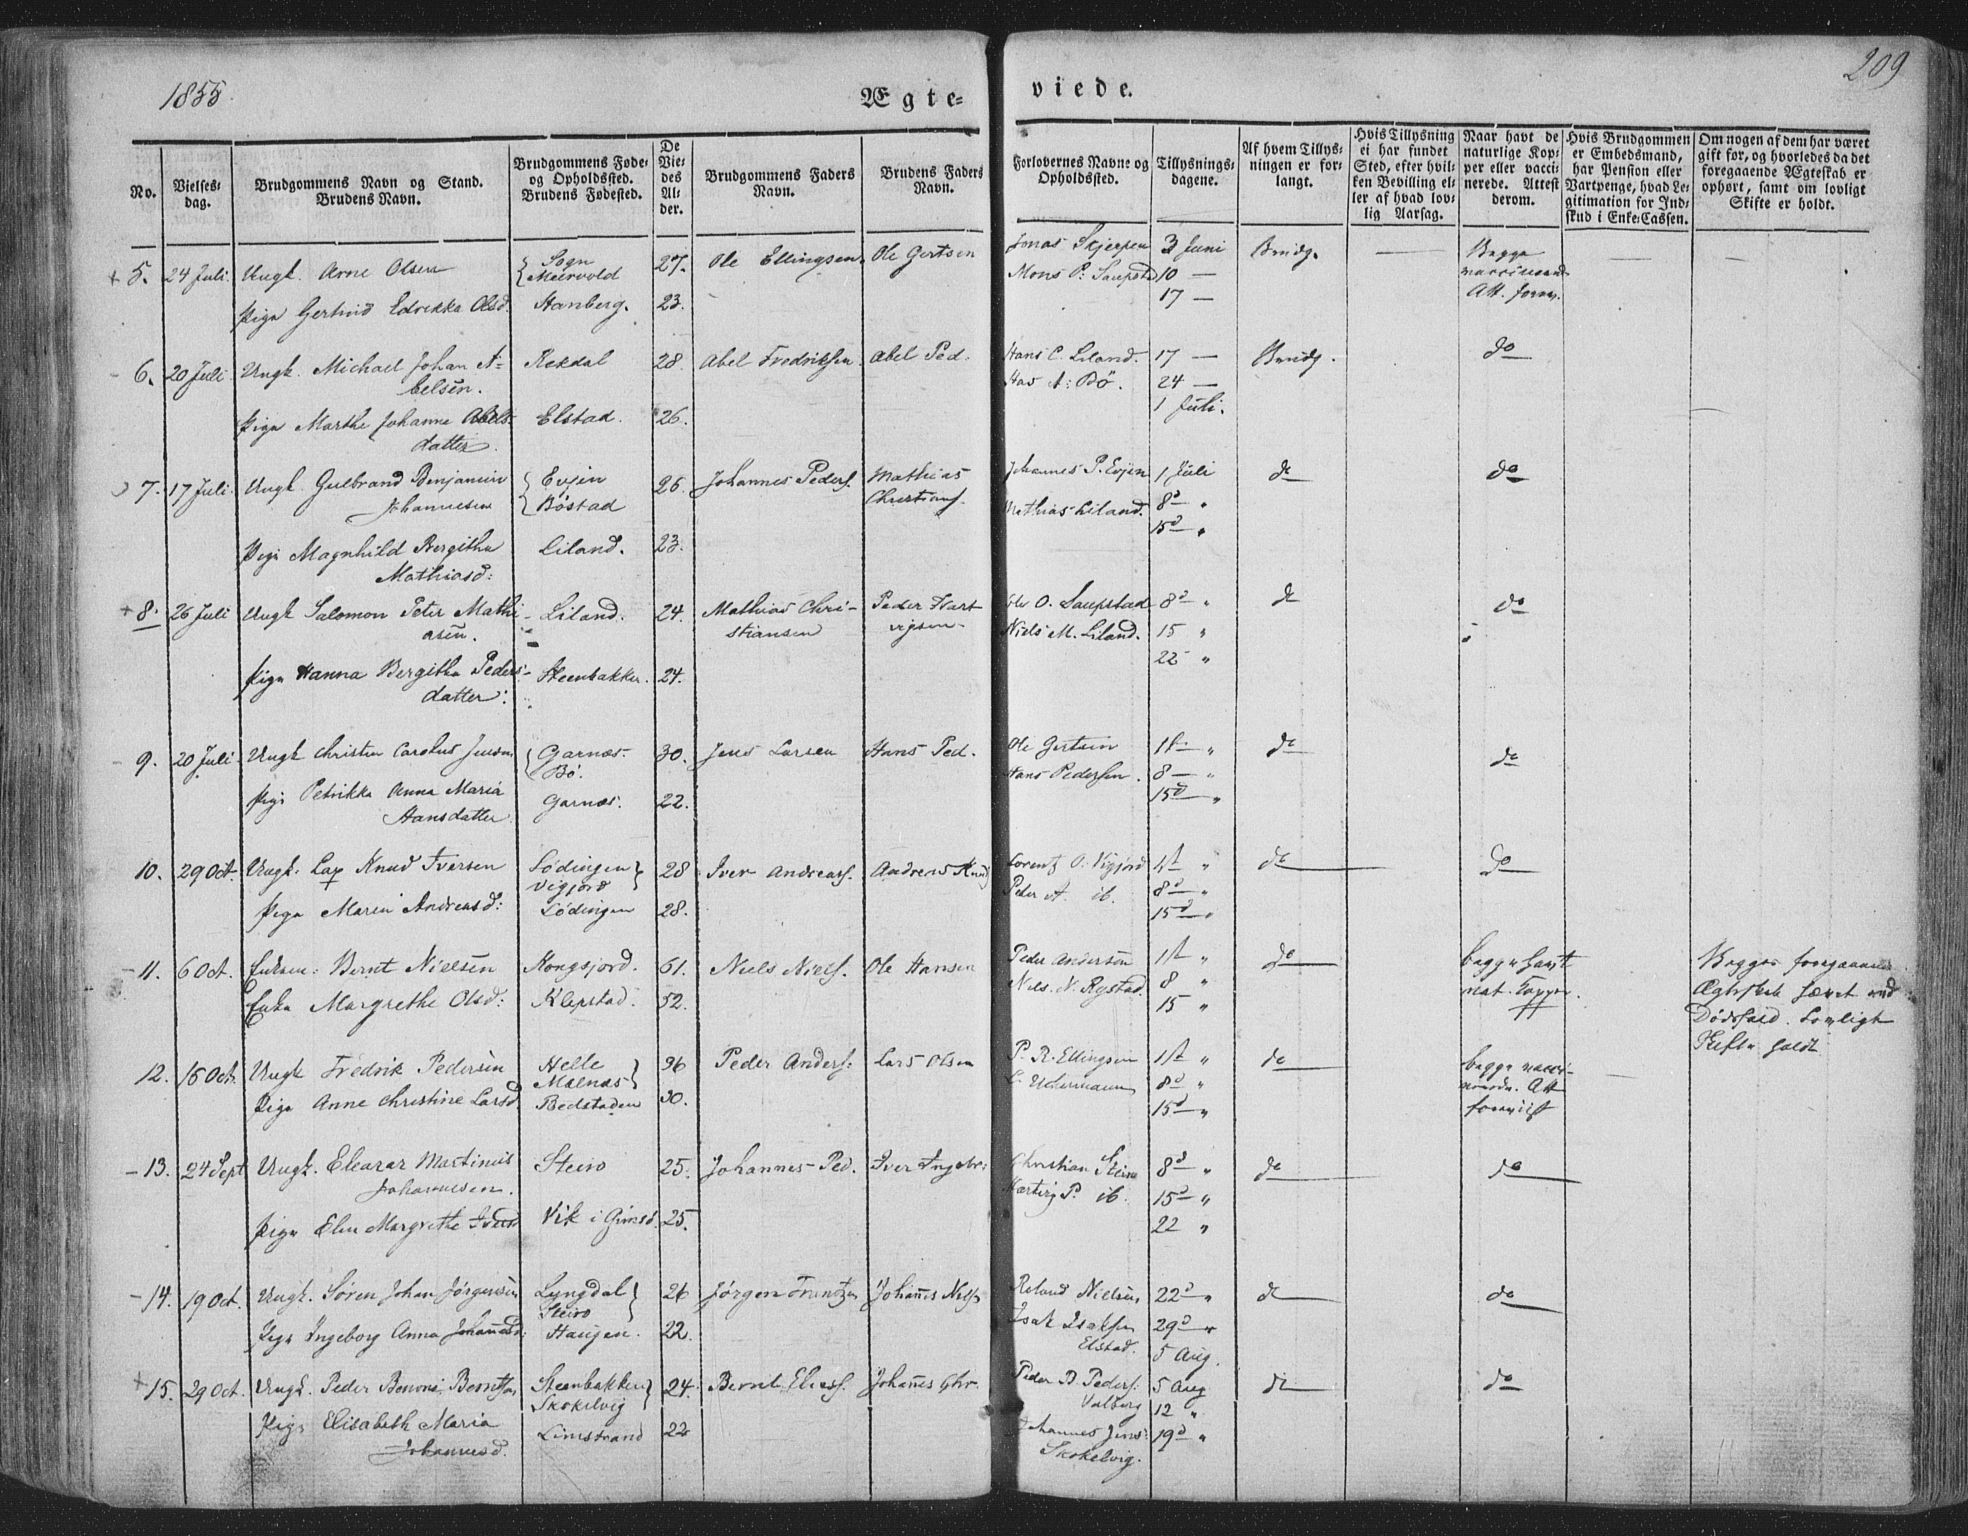 1855.
209
Ægte-
viede.
No.
Vielses-
dag.
Brudgommens Navn og Stand.
Brudens Navn.
Brudgommens Føde-
og Opholdssted.
Brudens Fødested.
De
Vie-
des
Al-
der.
Brudgommens Faders
Navn.
Brudens Faders
Navn.
Forlovernes Navne og
Opholdssted.
Tillysnings-
dagene.
Af hvem Tillys-
ningen er for-
langt.
Hvis Tillysning
ei har fundet
Sted, efter hvil-
ken Bevilling el-
ler af hvad lov-
lig Aarsag.
Naar havt de
naturlige Kop-
per eller vacci-
nerede. Attest
derom.
Hvis Brudgommen
er Embedsmand,
har Pension eller
Vartpenge, hvad Le-
gitimation for Ind-
skud i Enke-Cassen.
Om nogen af dem har været
gift før, og hvorledes da det
foregaaende Ægteskab er
ophørt, samt om lovligt
Skifte er holdt.
+ 5. 24 Juli Ungk. Arne Olsen Sogn 27. Ole Ellingsen Ole Gertsen Jonas Skjerpen 3 Juni Brudg. — Begge
Mons P: Saupstad 10 —
17 — Att. forev.
Pige Gertrud Edvikka Olsd. Hanberg. 23.
- 6. 20 Juli Ungk. Michael Johan A- Rekdal 28. Abel Fredriksen Abel Ped. Hans C. Liland. 17 — Brudg. do
belsen. A: Bø. 24 —
1 Juli.
Pige Marthe Johanne Abels- Elstad. 26.
datter.
7. 17 Juli Ungk. Gulbrand Benjamin Evjen 26. Johannes Peders. Mathias Johannes P. Evjen 1 Juli do do
Johannesen Bøstad Christians. Mathias Liland. 8d "
15d "
Pige Magnhild Bergitha Liland. 23.
Mathiasd:
+ 8. 26 Juli Ungk Salomon Peter Mathi- Liland. 24. Mathias Chri- Peder Hart Ole O. Saupstad 8d " do do
asen. stiansen vigsen. Niels M. Liland. 15 "
22 "
Pige Hanna Bergitha Peders- Steenbakken. 24.
datter.
- 9. 20 Juli Ungk Christen Carolus Jensen Garnæs- 30. Jens Larsen Hans Ped. Ole Gertsen 1st " do do
Bø. Hans Pedersen. 8 — "
15d "
Pige Petrikka Anna Maria Garnæs. 22.
Hansdatter
10. 29 Oct. Ungk. Lap Knud Iversen Lødingen 28 Iver Andreas. Andreas Knud Lorentz O. Vigfjord 1st " do do
Vigfjord Peder A. ib. 8d "
Pige Maren Andreasd: Lødingen 28. 15d "
- 11. 6 Oct. Enkem: Bernt Nielsen Kongsjord. 61. Niels Niels. Ole Hansen Peder Andersen 1st " do begge havt Begges foregaaende
Niels N. Rystad. 8 " nat. Kopper. Ægteskab hævet ved
Enke Margrethe Olsd: Klepstad. 52. 15 " Dødsfald. Lovligt
Skifte holdt
12. 15 Oct. Ungk Fredrik Pedersen Helle 36 Peder Anders. Lars Olsen P. R. Ellingsen 1st " do begge vacci-
Malnæs 8d " Att
Pige Anne Christine Larsd. Bedstaden 30. 15d " foreviist
- 13. 24 Sept Ungk. Eleazar Martinus Steiro 25. Johannes Ped. Iver Ingebr: Christian Steiro 8d " do do
Johannesen. P. ib. 15d "
Pige Elen Margrethe Iversd Vik i Gimsø. 25. 22 "
- 14. 19 Oct. Ungk. Søren Johan Jørgensen Lyngdal 26 Jørgen Frantzen Johannes Niels. Roland Nielsen 22d " do do
Steiro Isak Isaksen 29d "
Pige Ingeborg Anna Johannesd: Haugen. 22. Elstad. 5 Aug.
+ 15. 29 Oct. Ungk. Peder Benoni Berntsen Steenbakken 24. Bernt Elias. Johannes Chr. Peder B. Peders: 5 Aug do do
Skokelvig Valberg 12 "
Pige Elisabeth Maria Limstrand 22 Johannes Jens: 19d "
Johannesd. Skokelvig.